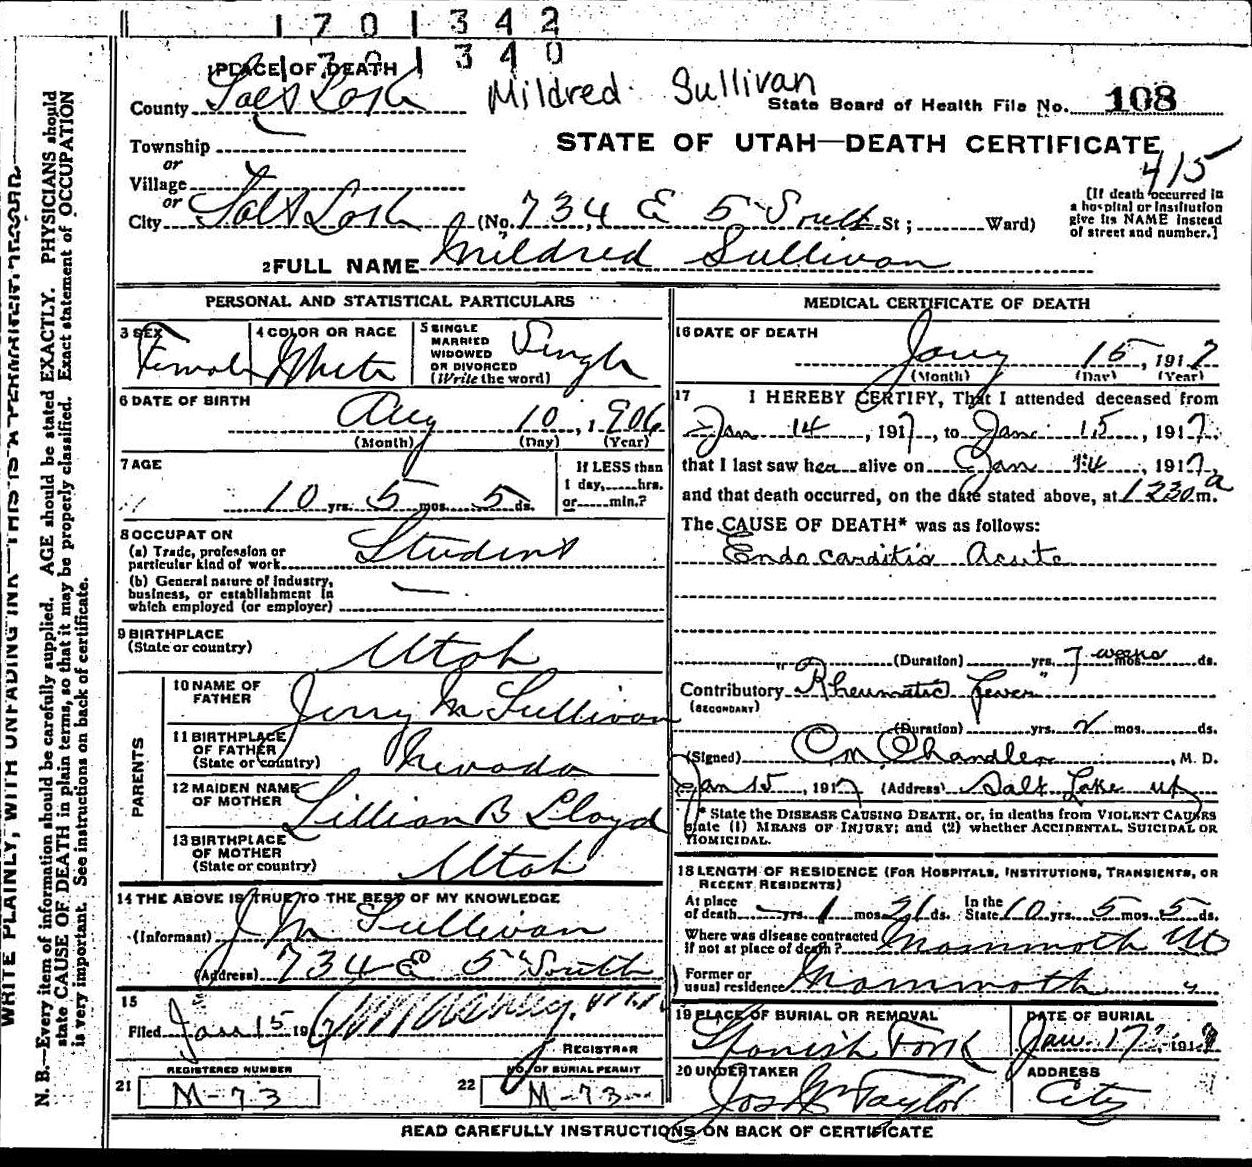 1701342
1701340
PLACE OF DEATH
County Salt Lake Mildred Sullivan State Board of Health File No. 108
Township
or
Village
or
STATE OF UTAH—DEATH CERTIFICATE
415
[If death occurred in
a hospital or institution
give its NAME instead
of street and number.]
City Salt Lake (No. 734 E 5 South St; Ward)
2 FULL NAME Mildred Sullivan
PERSONAL AND STATISTICAL PARTICULARS
3 SEX Female
4 COLOR OR RACE White
5 SINGLE
MARRIED
WIDOWED
OR DIVORCED
(Write the word) Single
6 DATE OF BIRTH
Aug 10, 1906
(Month) (Day) (Year)
7 AGE
10 yrs. 5 mos. 5 ds.
If LESS than
1 day, hrs.
or min.?
8 OCCUPATION
(a) Trade, profession or
particular kind of work Student
(b) General nature of industry,
business, or establishment in
which employed (or employer)
9 BIRTHPLACE
(State or country) Utah
PARENTS
10 NAME OF
FATHER Jerry M Sullivan
11 BIRTHPLACE
OF FATHER
(State or country) Nevada
12 MAIDEN NAME
OF MOTHER Lillian B Lloyd
13 BIRTHPLACE
OF MOTHER
(State or country) Utah
14 THE ABOVE IS TRUE TO THE BEST OF MY KNOWLEDGE
(Informant) J M Sullivan
(Address) 734 E 5 South
15
Filed Jan 15 1917
REGISTRAR
REGISTERED NUMBER
21 M-73
NO. OF BURIAL PERMIT
22 M-73
MEDICAL CERTIFICATE OF DEATH
16 DATE OF DEATH
Jany 15, 1917
(Month) (Day) (Year)
17 I HEREBY CERTIFY, That I attended deceased from
Jan 14, 1917, to Jan 15, 1917,
that I last saw her alive on Jan 14, 1917,
and that death occurred, on the date stated above, at 1230 a m.
The CAUSE OF DEATH* was as follows:
Endocarditis Acute
(Duration) yrs. 7 weeks mos. ds.
Contributory "Rheumatic Fever"
(SECONDARY)
(Duration) yrs. 2 mos. ds.
(Signed) Chandler, M. D.
Jan 15, 1917 (Address) Salt Lake Ut
* State the DISEASE CAUSING DEATH, or, in deaths from VIOLENT CAUSES
state (1) MEANS OF INJURY; and (2) whether ACCIDENTAL, SUICIDAL OR
HOMICIDAL.
18 LENGTH OF RESIDENCE (FOR HOSPITALS, INSTITUTIONS, TRANSIENTS, OR
RECENT RESIDENTS)
At place
of death yrs. 1 mos. 21 ds. In the
State 10 yrs. 5 mos. 5 ds.
Where was disease contracted
if not at place of death? Mammoth Ut
Former or
usual residence Mammoth "
19 PLACE OF BURIAL OR REMOVAL
Spanish Fork
DATE OF BURIAL
Jan. 17, 1917
20 UNDERTAKER
Jos Wm Taylor
ADDRESS
City
READ CAREFULLY INSTRUCTIONS ON BACK OF CERTIFICATE
WRITE PLAINLY, WITH UNFADING INK—THIS IS A PERMANENT RECORD
N. B.—Every item of information should be carefully supplied. AGE should be stated EXACTLY. PHYSICIANS should
state CAUSE OF DEATH in plain terms, so that it may be properly classified. Exact statement of OCCUPATION
is very important. See instructions on back of certificate.